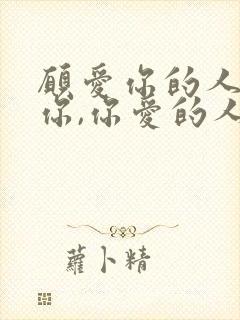 願爱你的人
你,你爱的人
蘿卜精